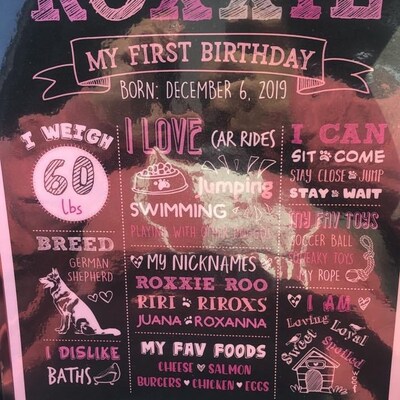 ROXXIE
MY FIRST BIRTHDAY
BORN: DECEMBER 6, 2019
I WEIGH
60
lbs
BREED
GERMAN
SHEPHERD
I DISLIKE
BATHS
I LOVE CAR RIDES
Jumping
SWIMMING
PLAYING WITH OTHER
MY NICKNAMES
ROXXIE ROO
RIRI RIROX'S
JUANA ROXANNA
MY FAV FOODS
CHEESE SALMON
BURGERS CHICKEN EGGS
I CAN
SIT COME
STAY CLOSE JUMP
STAY WAIT
MY FAV TOYS
SOCCER BALL
SQUEAKY TOYS
MY ROPE
I AM
Loving Loyal
Sweet Spoiled